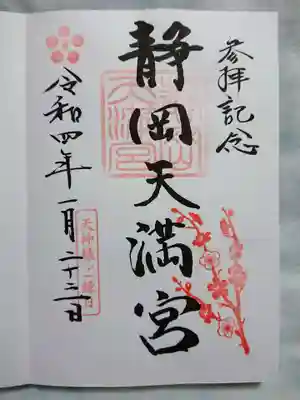 参拝記念
静岡天満宮
令和四年一月二十三日
天神様
縁日